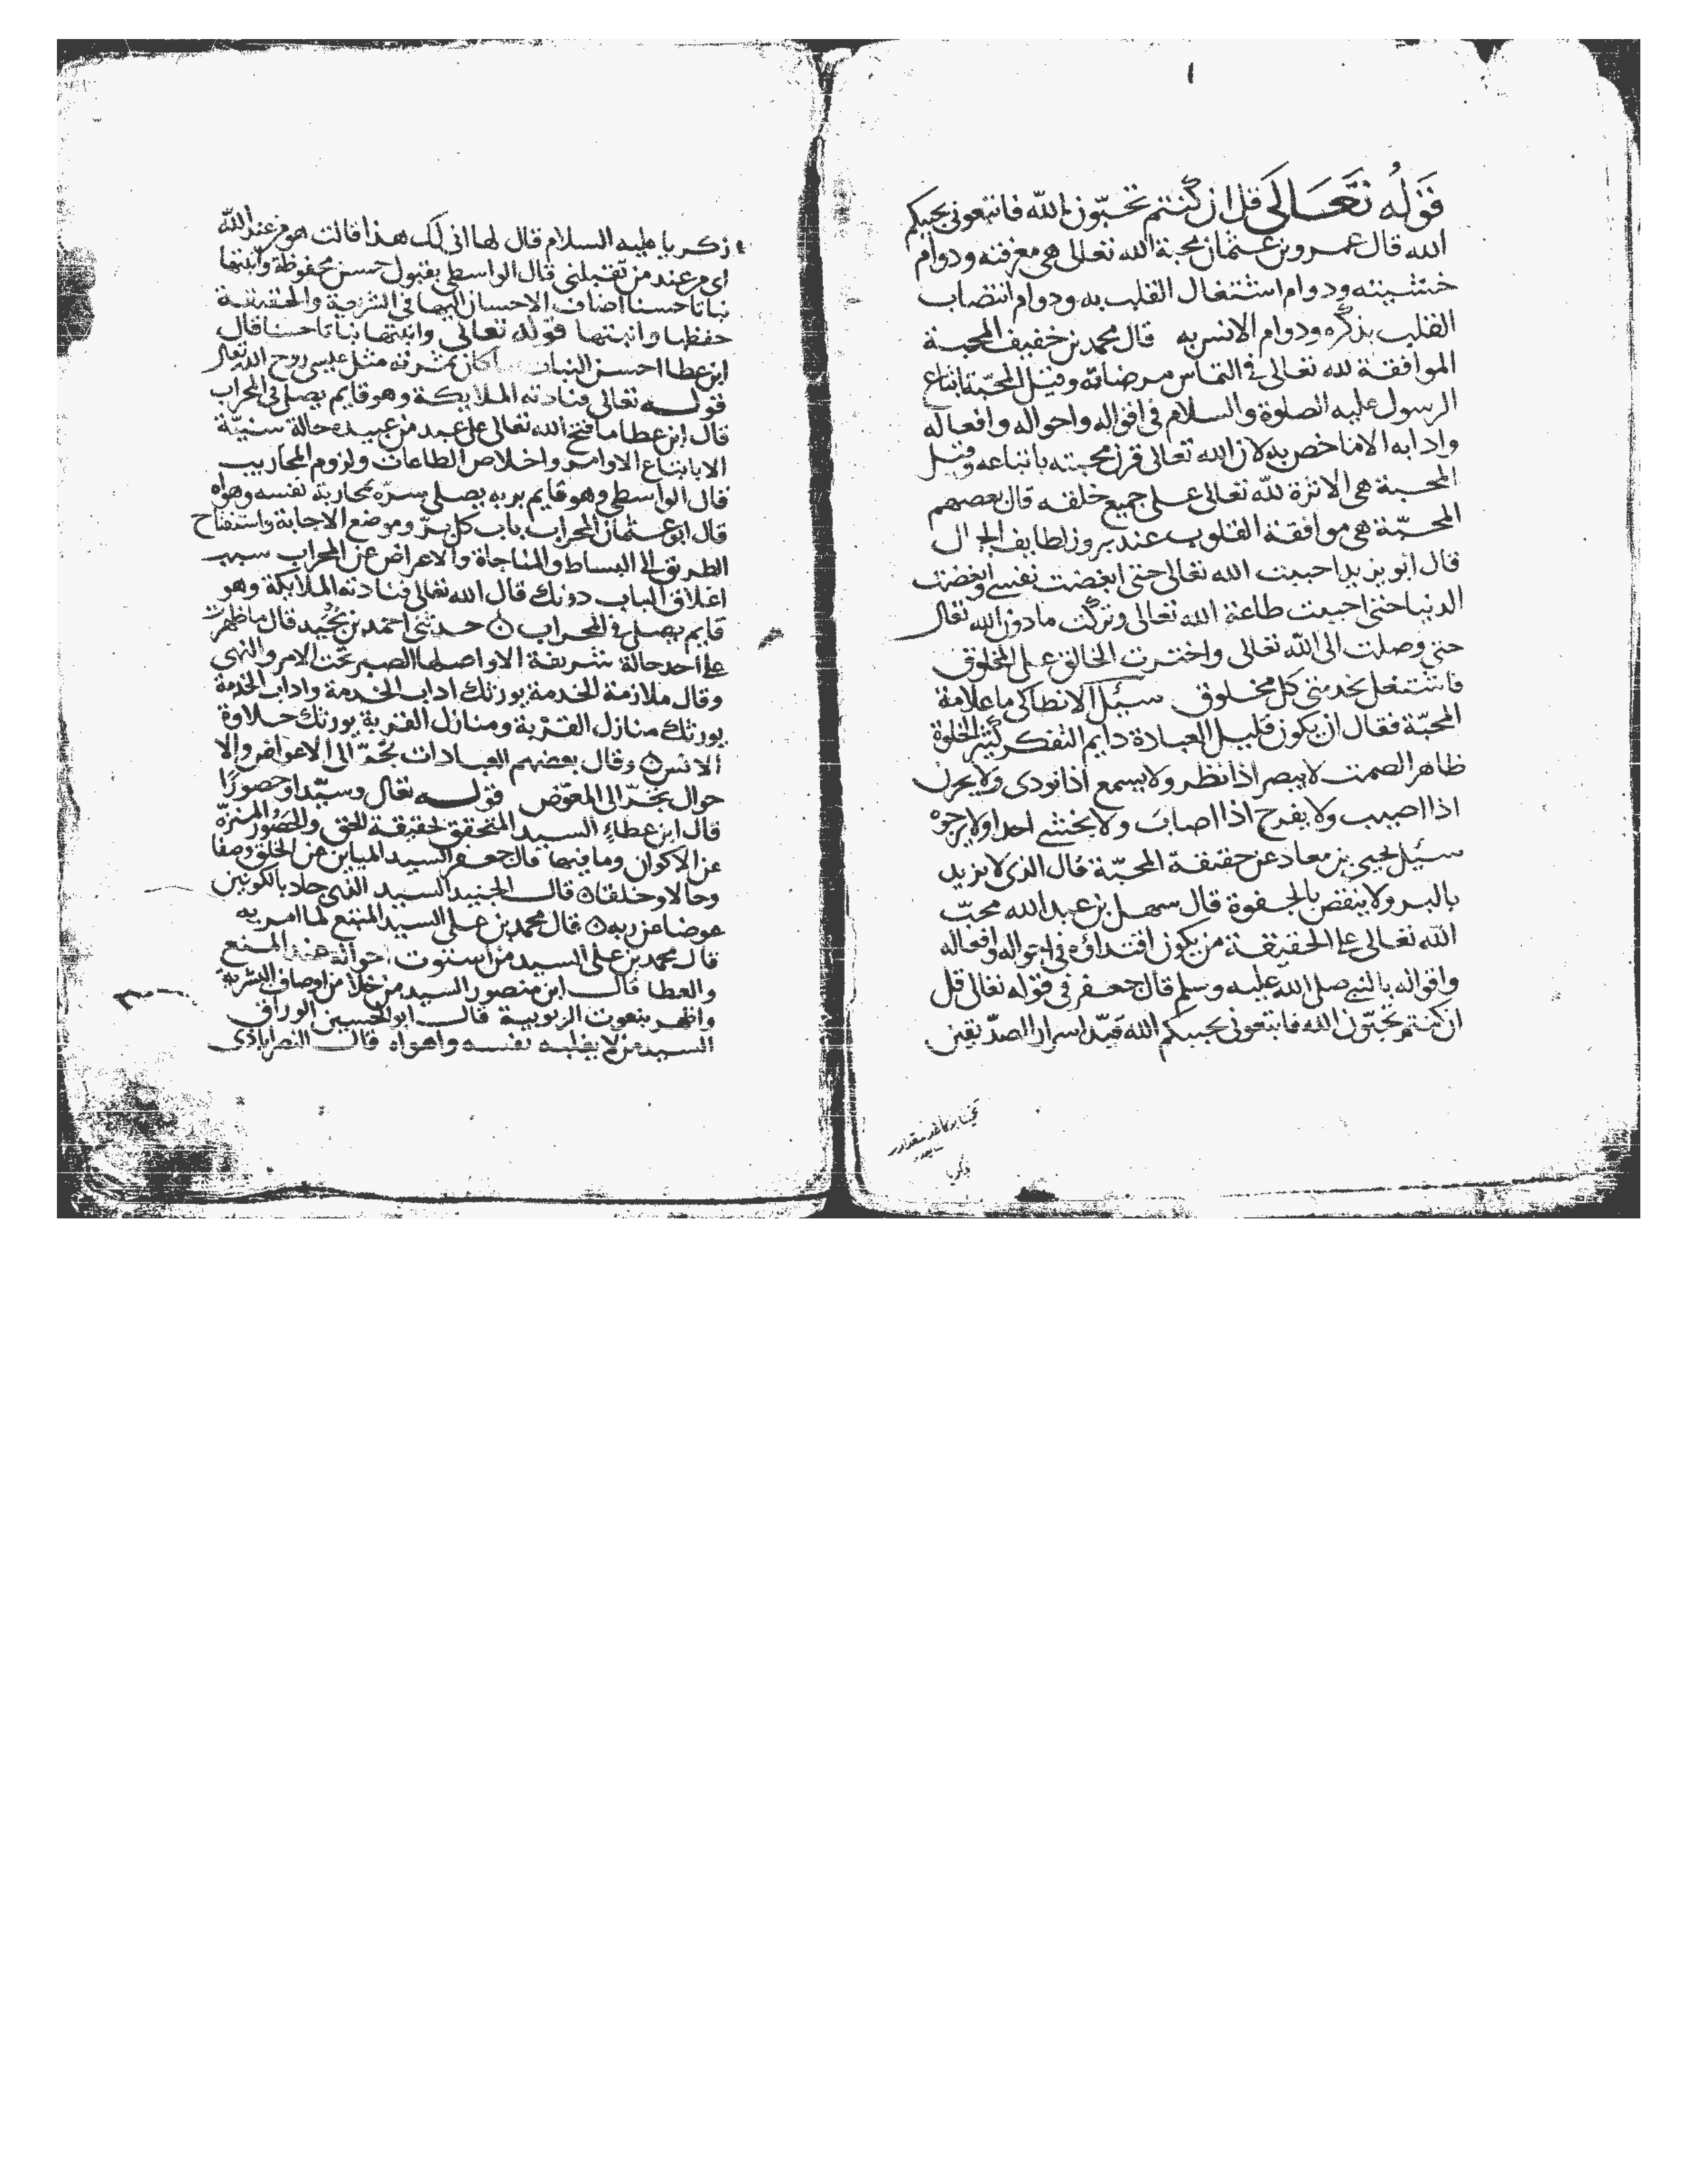 قوله تعالى قل ان كنتم تحبون الله فاتبعونى يحببكم
الله قال عمرو بن عثمان محبة الله تعالى هى معرفته ودوام
خشيته ودوام اشتغال القلب به ودوام انتصاب
القلب بذكره ودوام الانس به قال محمد بن خفيف المحبة
الموافقة لله تعالى فى التماس مرضاته وقيل المحبة اتباع
الرسول عليه الصلوة والسلام فى اقواله واحواله وافعاله
وادابه الا ما خص به لان الله تعالى قرن محبته باتباعه وقيل
المحبة هى الاثرة لله تعالى على جميع خلقه قال بعضهم
المحبّة هى موافقة القلوب عند بروز لطايف الجمال
قال ابو يزيد احببت الله تعالى حتى ابغضت نفسى وابغضت
الدنيا حتى احببت طاعة الله تعالى وتركت ما دون الله تعالى
حتى وصلت الى الله تعالى واخترت الخالق على المخلوق
فاشتغل بخدمتى كل مخلوق سئل الانطاكى ما علامة
المحبّة فقال ان يكون قليل العبادة دايم التفكر كثير الخلوة
ظاهر الصمت لا يبصر اذا نظر ولا يسمع اذا نودى ولا يحزن
اذا اصيب ولا يفرح اذا اصاب ولا يخشى احدا ولا يرجوه
سئل يحيى بن معاد عن حقيقة المحبّة قال الذى لا يزيد
بالبر ولا ينقص بالجفوة قال سهل بن عبد الله محبّ
الله تعالى على الحقيقة من يكون اقتداؤه فى احواله وافعاله
واقواله بالنبى صلى الله عليه وسلم قال جعفر فى قوله تعالى قل
ان كنتم تحبّون الله فاتبعونى يحببكم الله قيّد اسرار الصدّيقين
زكريا عليه السلام قال لها انى لك هذا قالت هو من عند الله
اى من عند من تقبلنى قال الواسطى بقبول حسن محفوظة وانبتها
نباتا حسنا اضاف الاحسان اليها فى الشريعة والحقيقة
حفظها وانبتها قوله تعالى وانبتها نباتا حسنا قال
ابن عطا احسن النبات ما كان ثمرته مثل عيسى روح الله تعالى
قوله تعالى فنادته الملايكة وهو قايم يصلى فى المحراب
قال ابن عطا ما فتح الله تعالى على عبد من عبيده حالة سنيّة
الا باتباع الاوامر واخلاص الطاعات ولزوم المحاريب
قال الواسطى وهو قايم بربه يصلى بسرّه محاربة نفسه وهواه
قال ابو عثمان المحراب باب كل برّ وموضع الاجابة واستفتاح
الطريق الى البساط والمناجاة والاعراض عن المحراب سبب
اغلاق الباب دونك قال الله تعالى فنادته الملايكة وهو
قايم يصلى فى المحراب حدثنى احمد بن نجيد قال ما ظهرت
على احد حالة شريفة الا واصلها الصبر تحت الامر والنهى
وقال ملازمة الخدمة يورثك اداب الخدمة واداب الخدمة
يورثك منازل القربة ومنازل القربة يورثك حلاوة
الانس وقال بعضهم العبادات تجرّ الى الاعواض والا
حوال تجرّ الى المعوّض قوله تعالى وسيّدا وحصورًا
قال ابن عطاء السيد المتحقق لحقيقة الحق والحصور المنزه
عن الاكوان وما فيها قال جعفر السيد المباين عن الخلق وصفا
وحالا وخلقا قال الجنيد السيد الذى جاد بالكونين
عوضا عن ربه قال محمد بن على السيد المتبع لما امر به
قال محمد بن على السيد من استوت احواله عند المنع
والعطا قال ابن منصور السيد من خلا من اوصاف البشرية
واظهر بنعوت الربوبية قال ابو الحسين الوراق
السيد من لا يغلبه نفسه واهواه قال النصراباذى